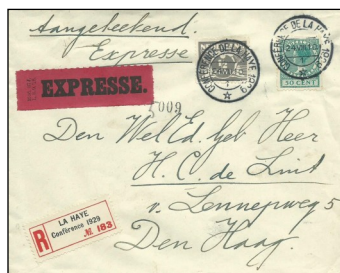 Aangeteekend.
Expresse.
CONFERENCE DE LA HAYE 1929
CONFERENCE DE LA HAYE 1929
50 CENT
EXPRESSE.
Den Wel Ed. Geb Heer
H. C. de Lint
v. Lennepweg 5
Den Haag.
R
LA HAYE
Conférence 1929
№ 183